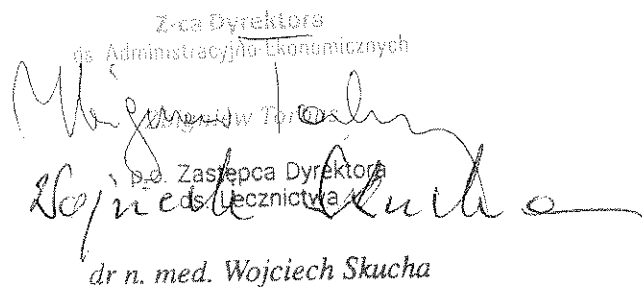 Z-ca Dyrektora
ds. Administracyjno-Ekonomicznych
Zbigniew
p.o. Zastępca Dyrektora
ds. Lecznictwa
Wojciech Skucha
dr n. med. Wojciech Skucha